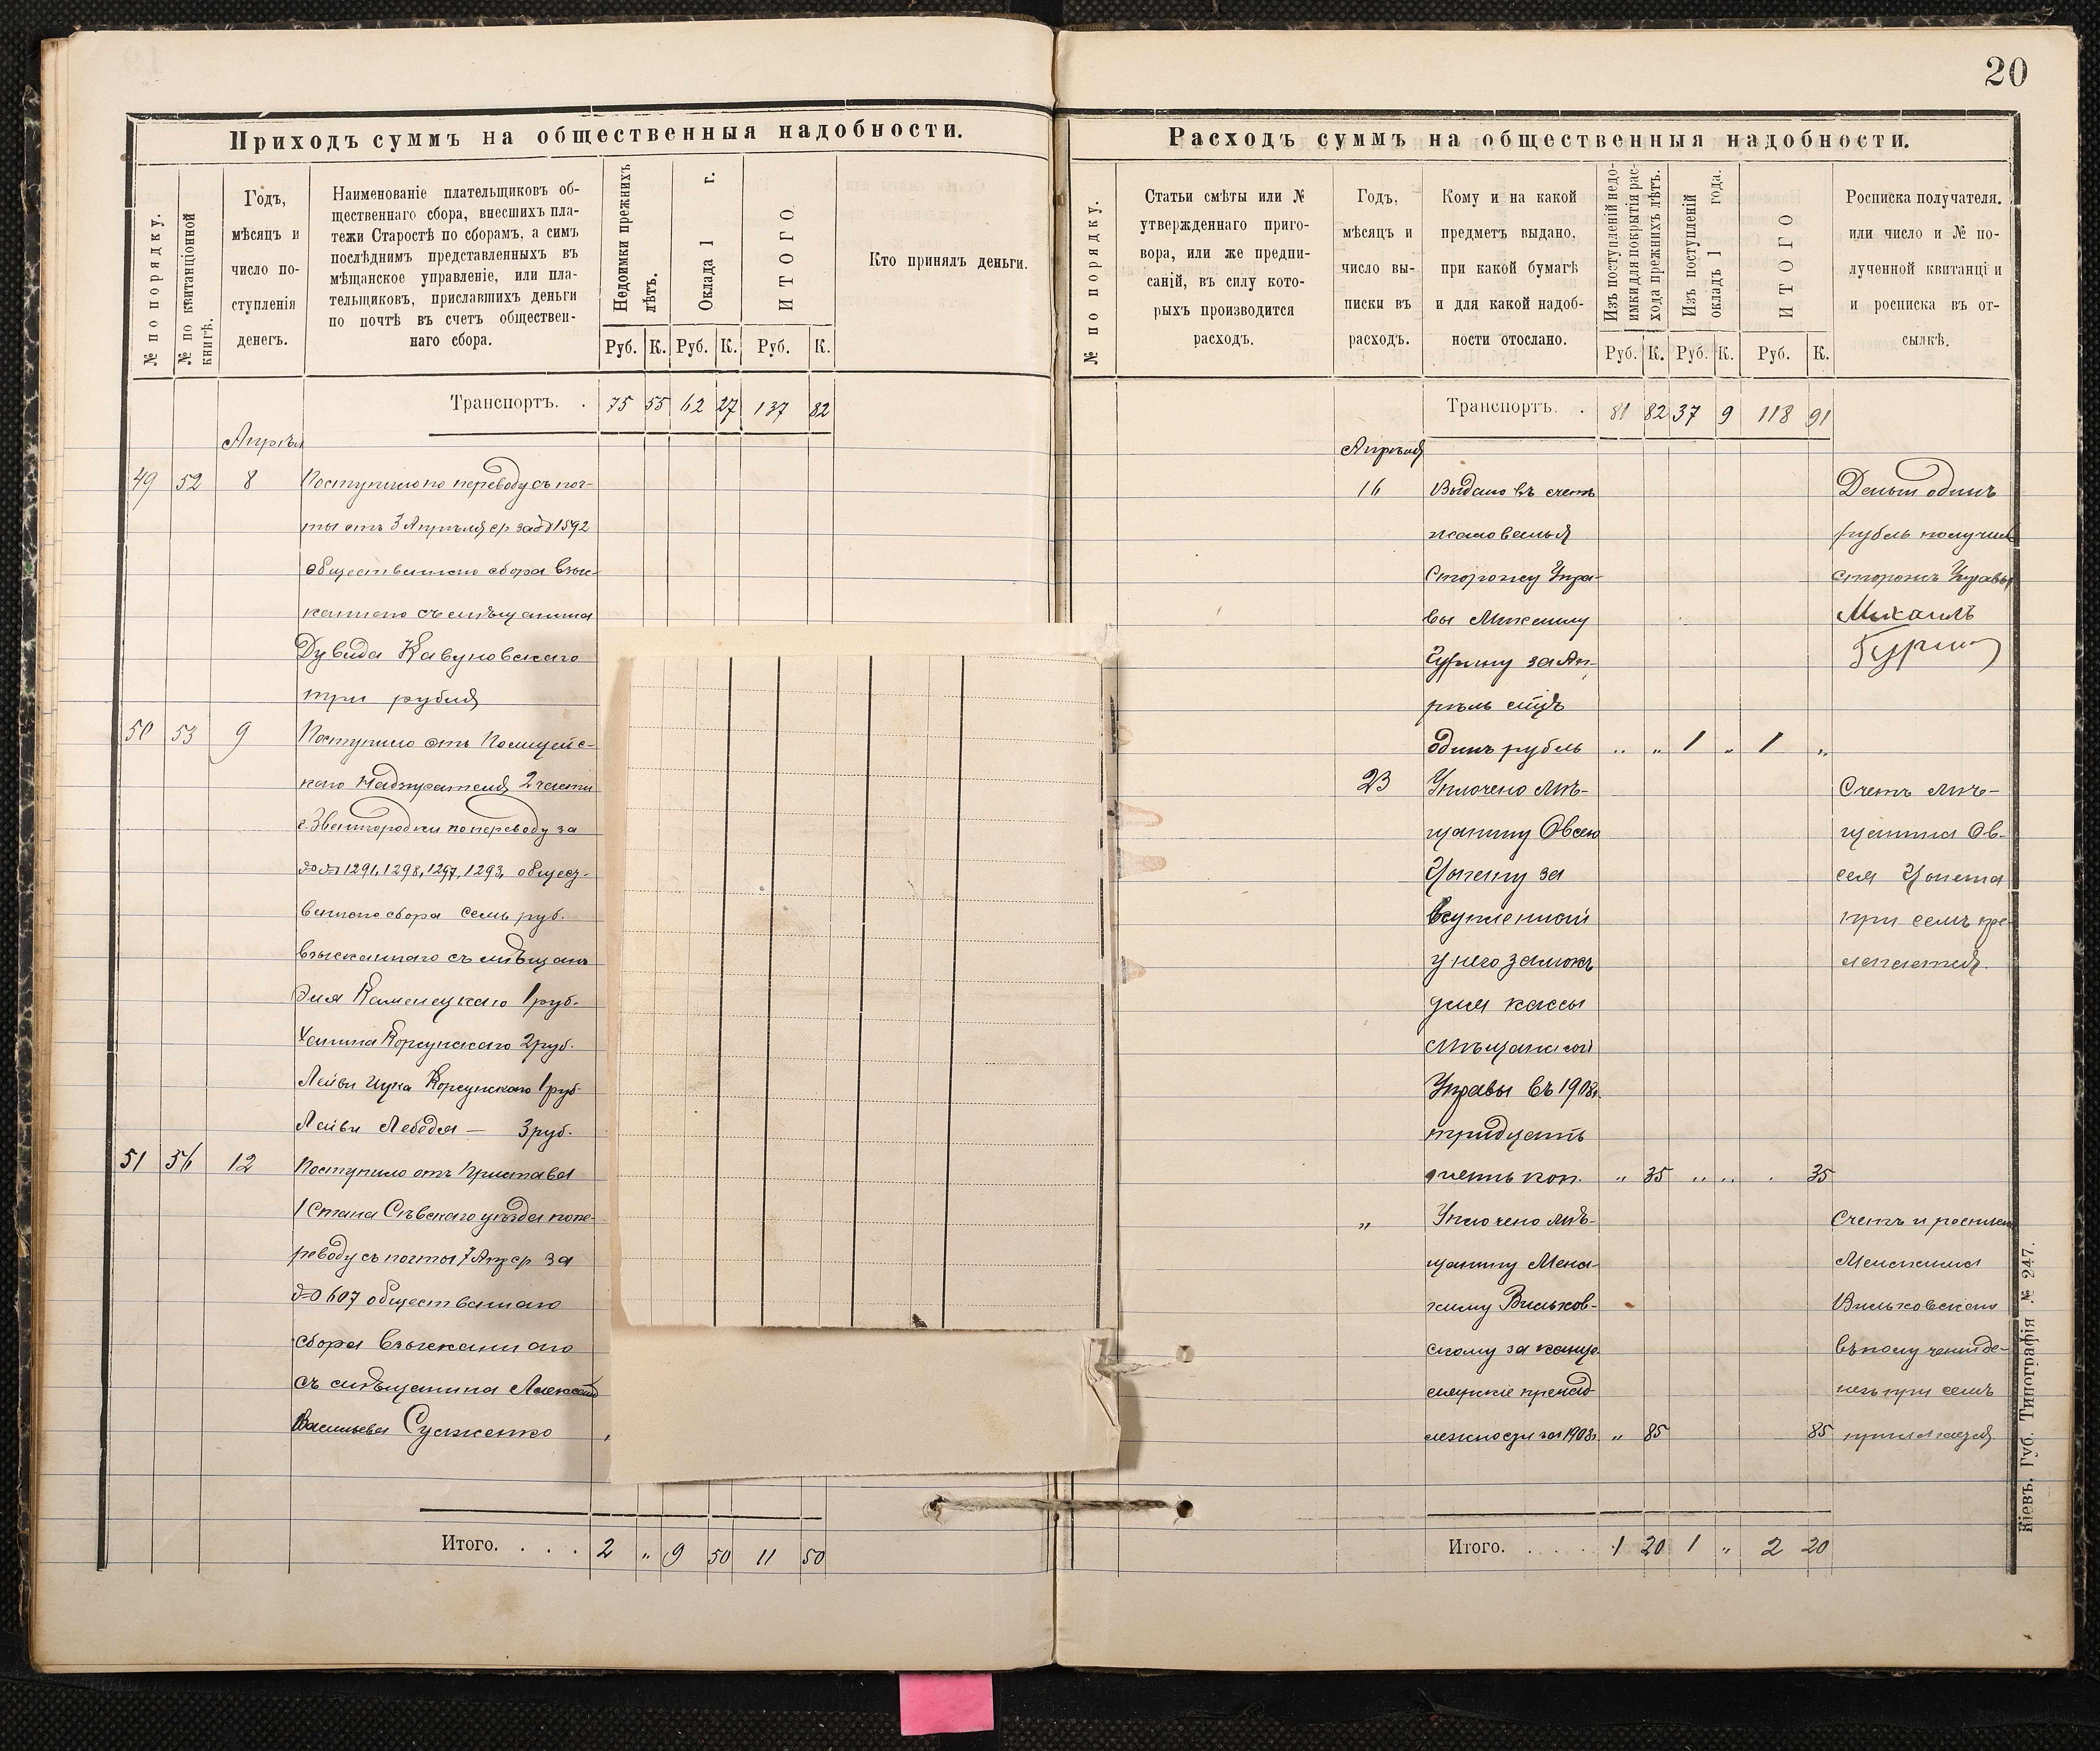 20
Приходъ суммъ на общественныя надобности.
№ по порядку.
№ по квитанціонной книгѣ.
Годъ,
мѣсяцъ и
число по-
ступленія
денегъ.
Наименованіе плательщиковъ об-
щественнаго сбора, внесшихъ пла-
тежи Старостѣ по сборамъ, а симъ
послѣднимъ представленныхъ въ
мѣщанское управленіе, или пла-
тельщиковъ, приславшихъ деньги
по почтѣ въ счетъ обществен-
наго сбора.
Недоимки прежнихъ
лѣтъ.
Оклада 1 г.
ИТОГО
Руб. К. Руб. К. Руб. К.
Кто принялъ деньги.
Транспортъ. . 75 55 62 27 137 82
Апрѣля
49 52 8 Поступило по переводу съ поч-
ты отъ 3 Апрѣля ср за № 1592
общественнаго сбора взыс-
каннаго съ мѣщанина
Дувида Кавуновскаго
три рубля
50 53 9 Поступило отъ Полицейс-
каго Надзирателя 2 части
г. Звенигородки по переводу за
№№ 1291, 1298, 1297, 1293, общест-
веннаго сбора семь руб.
взысканнаго съ мѣщанъ
Эля Каменецкаго 1 руб.
Ханина Корсунскаго 2 руб.
Лейви Ицка Корсунскаго 1 руб.
Лейви Лебедя — 3 руб.
51 56 12 Поступило отъ Пристава
1 Стана Сѣвскаго уѣзда попе-
реводу съ почты 7 Апр ср за
№ 607 общественнаго
сбора взысканнаго
съ мѣщанина
Васильева Сусженко
Итого. . . . 2 „ 9 50 11 50
Расходъ суммъ на общественныя надобности.
№ по порядку.
Статьи смѣты или №
утвержденнаго приго-
вора, или же предпи-
саній, въ силу кото-
рыхъ производится
расходъ.
Годъ,
мѣсяцъ и
число вы-
писки въ
расходъ.
Кому и на какой
предметъ выдано,
при какой бумагѣ
и для какой надоб-
ности отослано.
Изъ поступленій недо-
имки для покрытія рас-
хода прежнихъ лѣтъ.
Изъ поступленій
окладъ 1 года.
ИТОГО
Руб. К. Руб. К. Руб. К.
Росписка получателя.
или число и № по-
лученной квитанціи
и росписка въ от-
сылкѣ.
Транспортъ. . 81 82 37 9 118 91
Апрѣля
16 Выдано въ счетъ
жалованья
Сторожу Упра-
вы Михаилу
Гурину за Ап-
рѣль
одинъ рубль „ „ 1 „ 1 „
Деньги одинъ
рубль получилъ
сторожъ Управы
Михаилъ
Гурин
23 Уплочено Мѣ-
щанину Овсею
Цопету за
купленный
у него замокъ
для кассы
Мѣщанской
Управы въ 1908г.
тридцать
пять коп. „ 35 „ „ . 35
Счетъ Мѣ-
щанина Ов-
сея Цопета
при семъ пре-
лагается.
„ Уплочено Мѣ-
щанину Мена-
химу Вильков-
скому за канце-
лярскіе принад-
лежности за 1908г. „ 85 85
Счетъ и росписка
Менахима
Вильковскаго
въ полученіи де-
негъ при семъ
прилагается.
Итого. . . . 1 20 1 „ 2 20
Кіевъ. Губ. Типографія № 247.